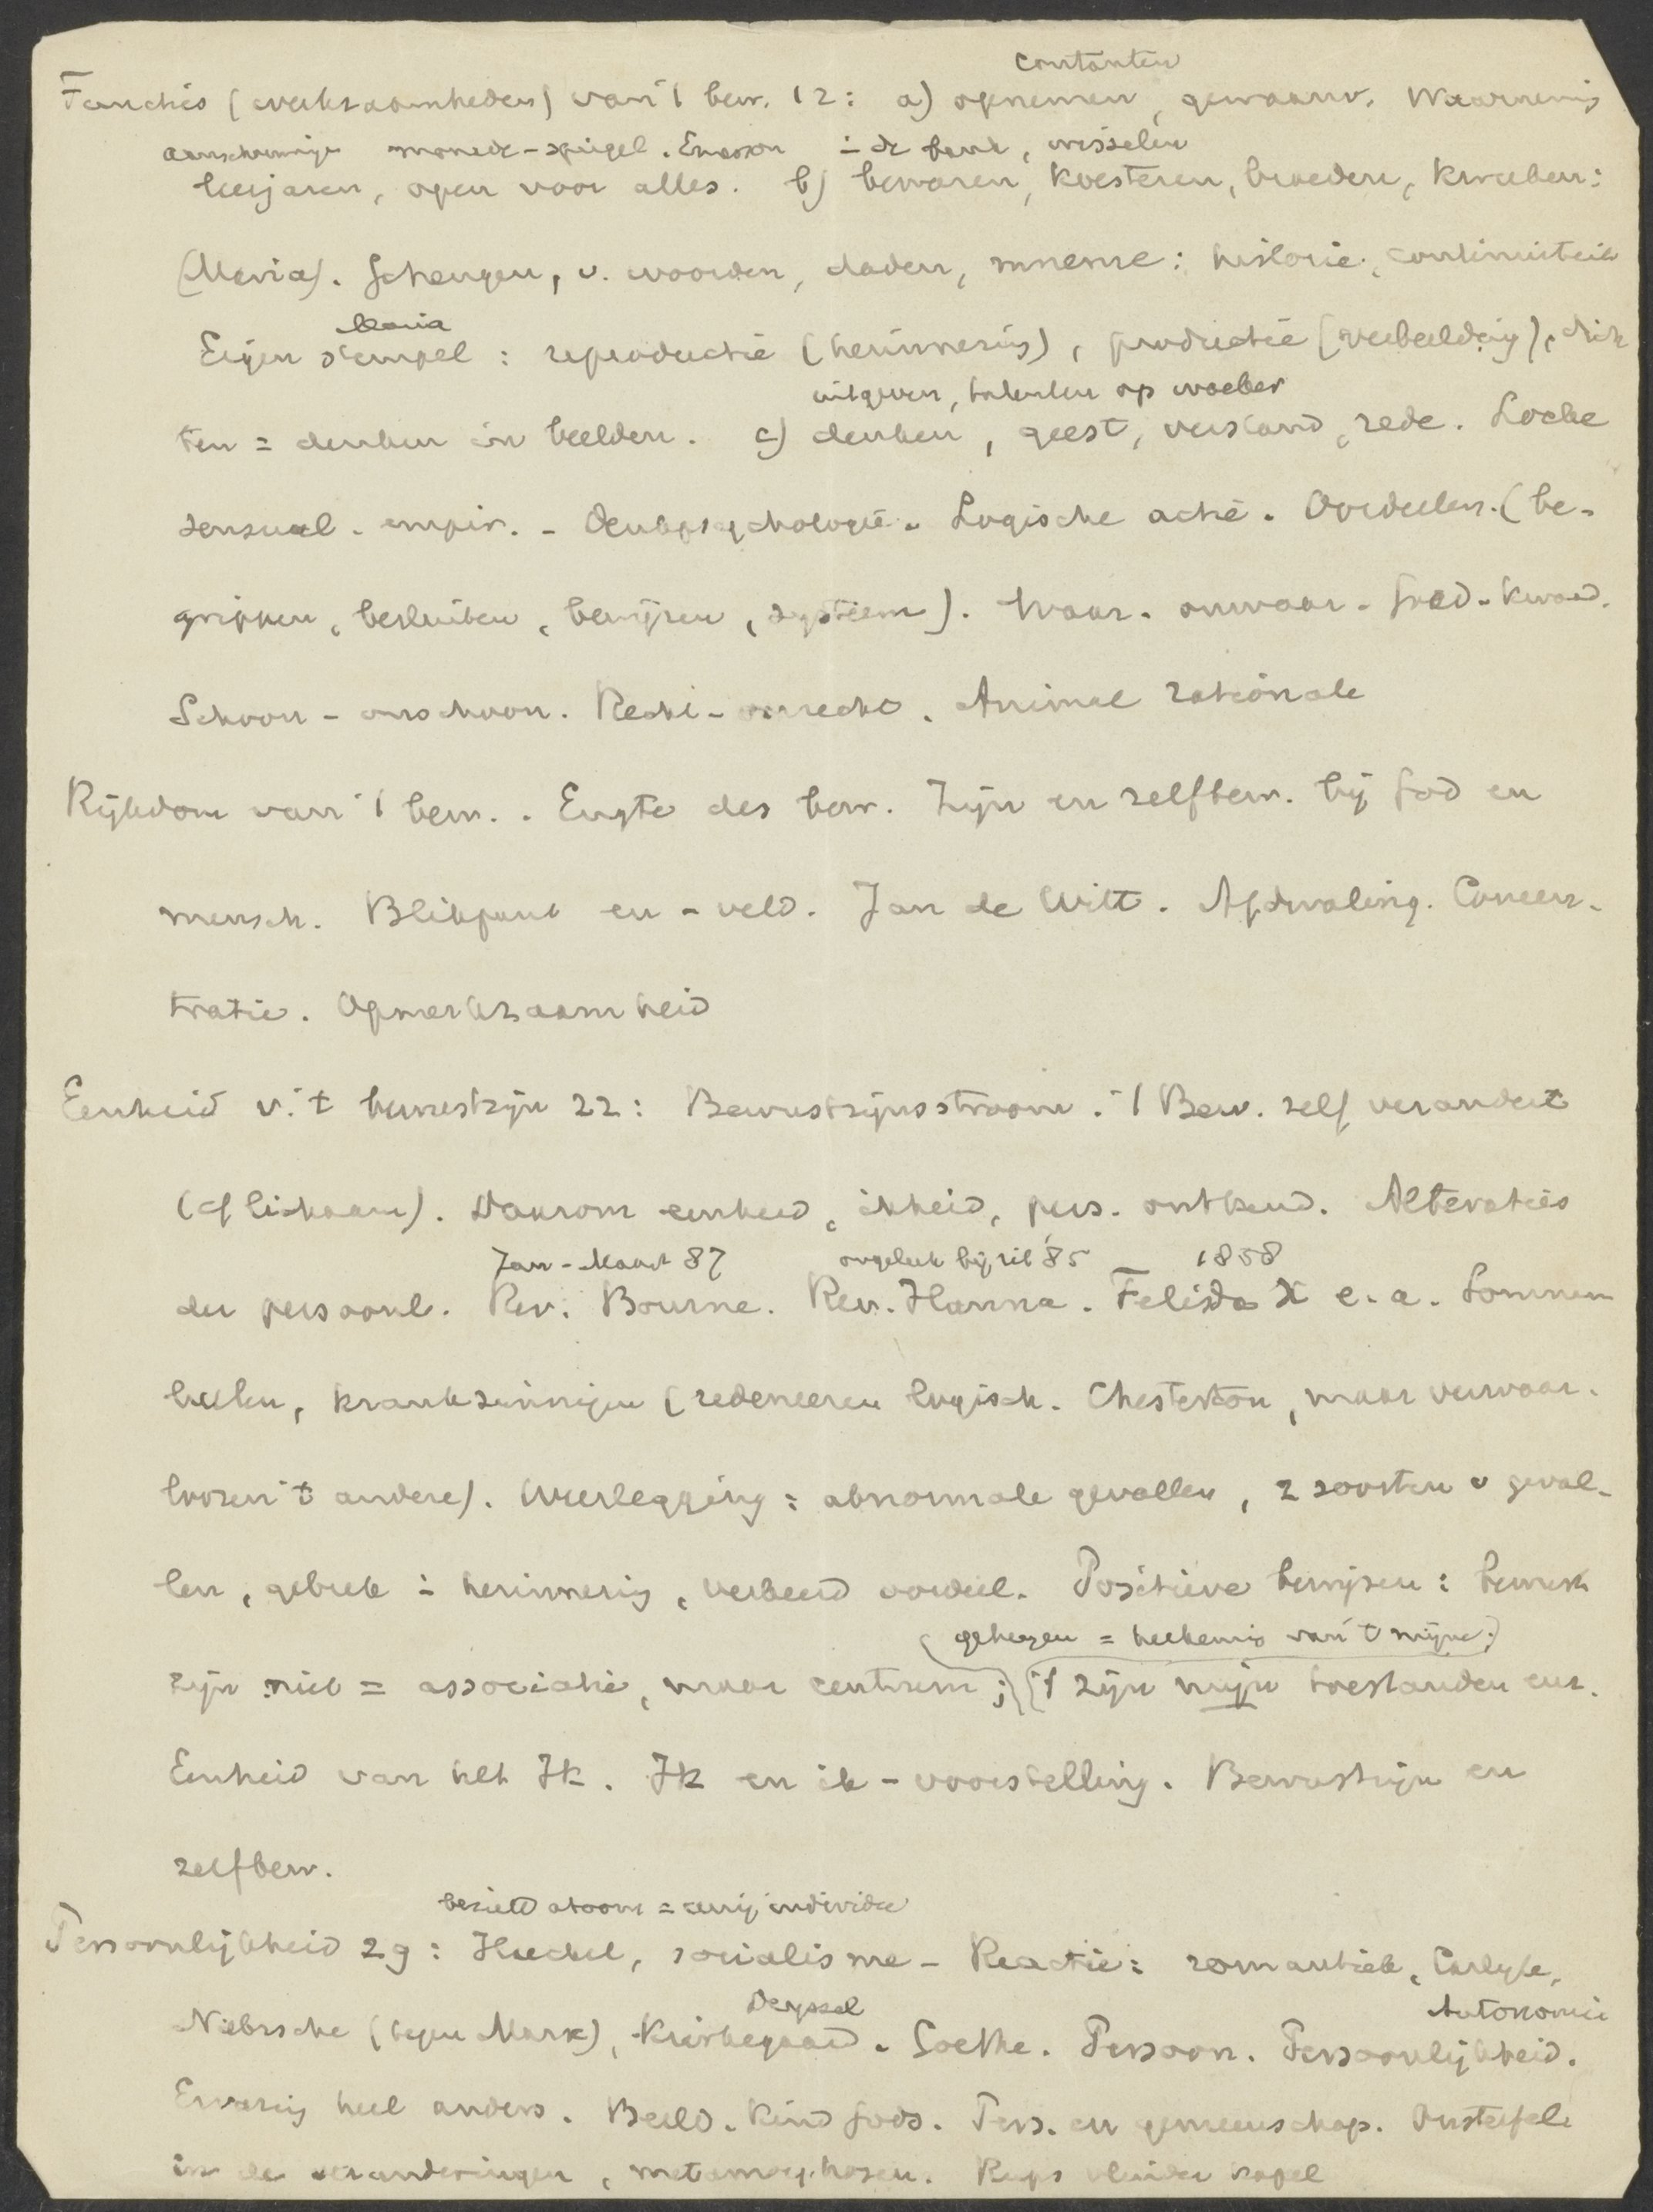 contanten
Functies (werkzaamheden) van 't bew. 12: a) opnemen, gewaarw. Waarneming
aanschouwingen monade-spiegel. Emerson in de bank, wisselen
leerjaren, open voor alles. b) bewaren, koesteren, broeden, kweeken:
(Maria). Geheugen, v. woorden, daden, mneme: historie, continuiteit
Maria
Eigen stempel: reproductie (herinnering), productie (verbeelding), dich
uitgeven, talenten op woeker
ten = denken in beelden. c) denken, geest, verstand, rede. Locke
sensual. empir. - Denkpsychologie. Logische actie. Oordeelen. (be-
grippen, besluiten, bewijzen, systeem). Waar - onwaar - goed - kwaad.
Schoon - onschoon. Recht - onrecht. Animal rationale
Rijkdom van 't bew. . Engte des bew. Zijn en zelfbew. bij God en
mensch. Blikpunt en - veld. Jan de Witt. Afdwaling. Concen-
tratie. Opmerkzaamheid
Eenheid v. 't bewustzijn 22: Bewustzijnsstroom. 't Bew. zelf verandert
(cf lichaam). Daarom eenheid, ikheid, pers. ontkend. Alteraties
Jan - Maart 87 ongeluk bij rit '85 1858
der persoonl. Rev. Bourne. Rev. Hanna. Felida X e.a. Somnam
bulen, krankzinnigen (redeneeren logisch. Chesterton, maar verwaar-
loozen 't andere). Weerlegging: abnormale gevallen, 2 soorten v geval-
len, gebrek in herinnering, verkeerd oordeel. Positieve bewijzen: bewust
(geheugen = herkennis van 't mijne;)
zijn niet = associatie, maar centrum; 't zijn mijn toestanden enz.
Eenheid van het Ik. Ik en ik-voorstelling. Bewustzijn en
zelfbew.
bezield atoom = eenig individu
Persoonlijkheid 29: Haeckel, socialisme - Reactie: romantiek, Carlyle,
Deyssel Autonomie
Nietzsche (tegen Marx), Kierkegaard. Goethe. Persoon. Persoonlijkheid.
Ervaring heel anders. Beeld. Kind Gods. Pers. en gemeenschap. Onsterfel
in de veranderingen, metamorphosen. Rups vlinder kapel